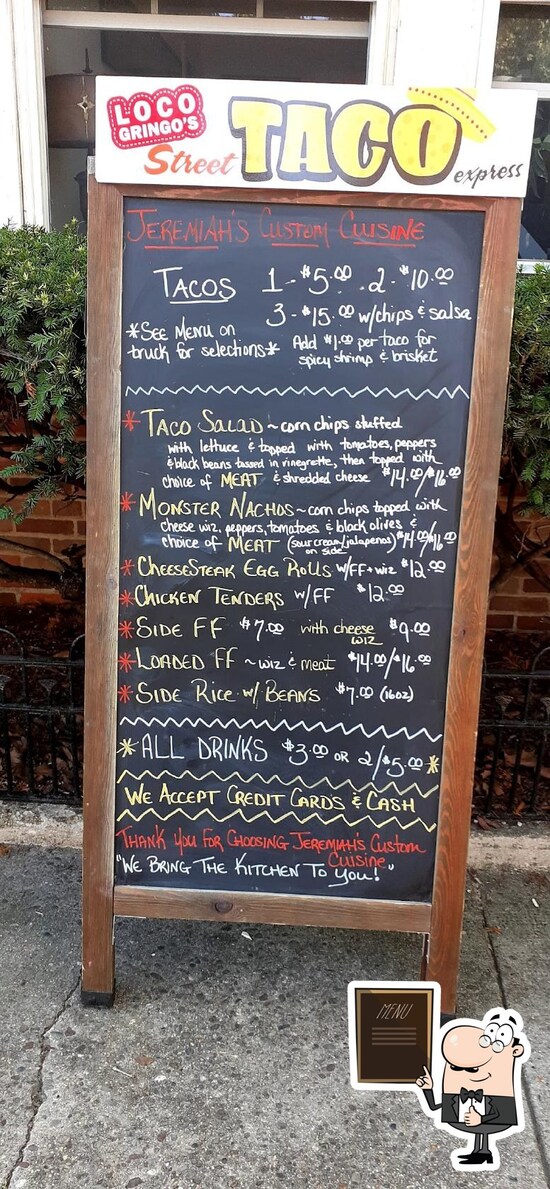 LOCO
GRINGO'S
Street TACO express
JEREMIAH'S CUSTOM CUISINE
TACOS 1 - $5.00 . 2 - $10.00
3 - $15.00 w/chips & salsa
*SEE MENU ON
truck for selections*
Add $1.00 per taco for
spicy shrimp & brisket
* TACO SALAD ~ corn chips stuffed
with lettuce & topped with tomatoes, peppers
& black beans tossed in vinegrette, then topped with
choice of MEAT & shredded cheese $14.00/$16.00
* MONSTER NACHOS ~ corn chips topped with
cheese wiz, peppers, tomatoes & black olives &
choice of MEAT (sour cream/jalapenos on side) $14.00/$16.00
* CHEESESTEAK EGG ROLLS w/FF + wiz $12.00
* CHICKEN TENDERS w/FF $12.00
* SIDE FF $7.00 with cheese wiz $9.00
* LOADED FF ~ wiz & meat $14.00/$16.00
* SIDE RICE w/ BEANS $7.00 (16oz)
* ALL DRINKS $3.00 OR 2/$5.00 *
WE ACCEPT CREDIT CARDS & CASH
THANK YOU FOR CHOOSING JEREMIAH'S CUSTOM
CUISINE
"WE BRING THE KITCHEN TO YOU!"
MENU